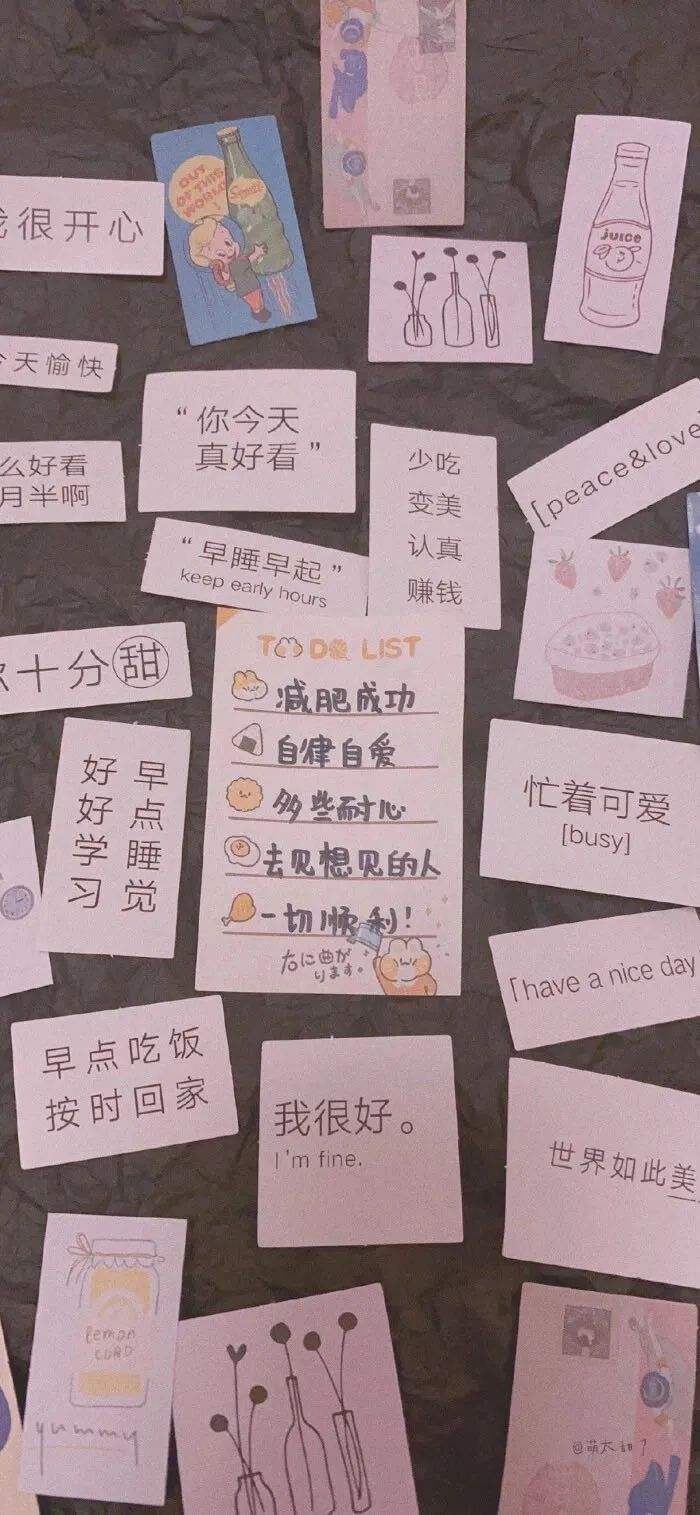 OUT
OF THIS
WORLD!
juice
我很开心
今天愉快
“你今天
真好看”
少吃
变美
认真
赚钱
[peace&love
么好看
月半啊
“早睡早起”
keep early hours
十分甜
TO DO LIST
减肥成功
自律自爱
多些耐心
去见想见的人
一切顺利!
右に曲が
ります。
早点睡觉
好好学习
忙着可爱
[busy]
「have a nice day
早点吃饭
按时回家
我很好。
I'm fine.
世界如此美
lemon
CURD
yummy